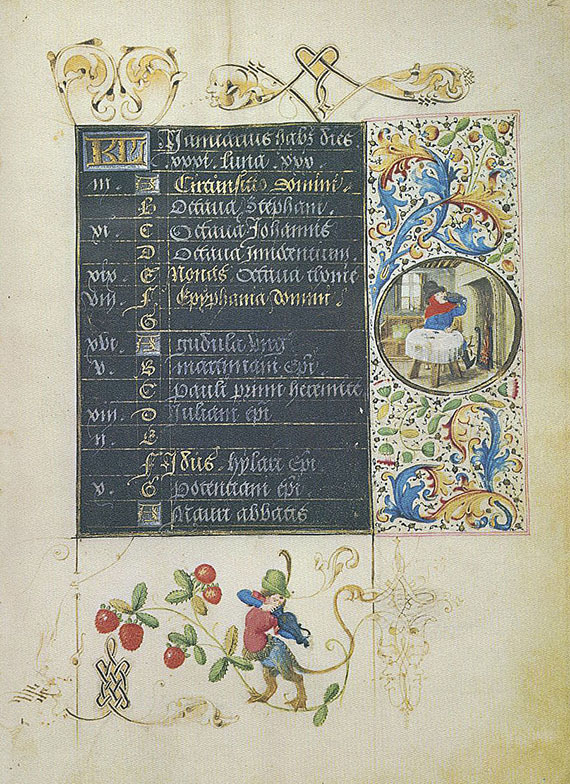 2
KL Januarius habz dies
xxxi. luna. xxx.
iii. A Circūsisio domini.
B Octaua Stephani.
xi. C Octaua Johannis
D Octaua Innocentium
xix. E Nonas Octaua thome
viii. F Epyphania domini.
G
xvi. A gudula virg
v. B marciani epi
C Pauli primi heremite
xiii. D Juliani epi
ii. E
F Idus. hylari epi
x. G Potentiani epi.
A Mauri abbatis